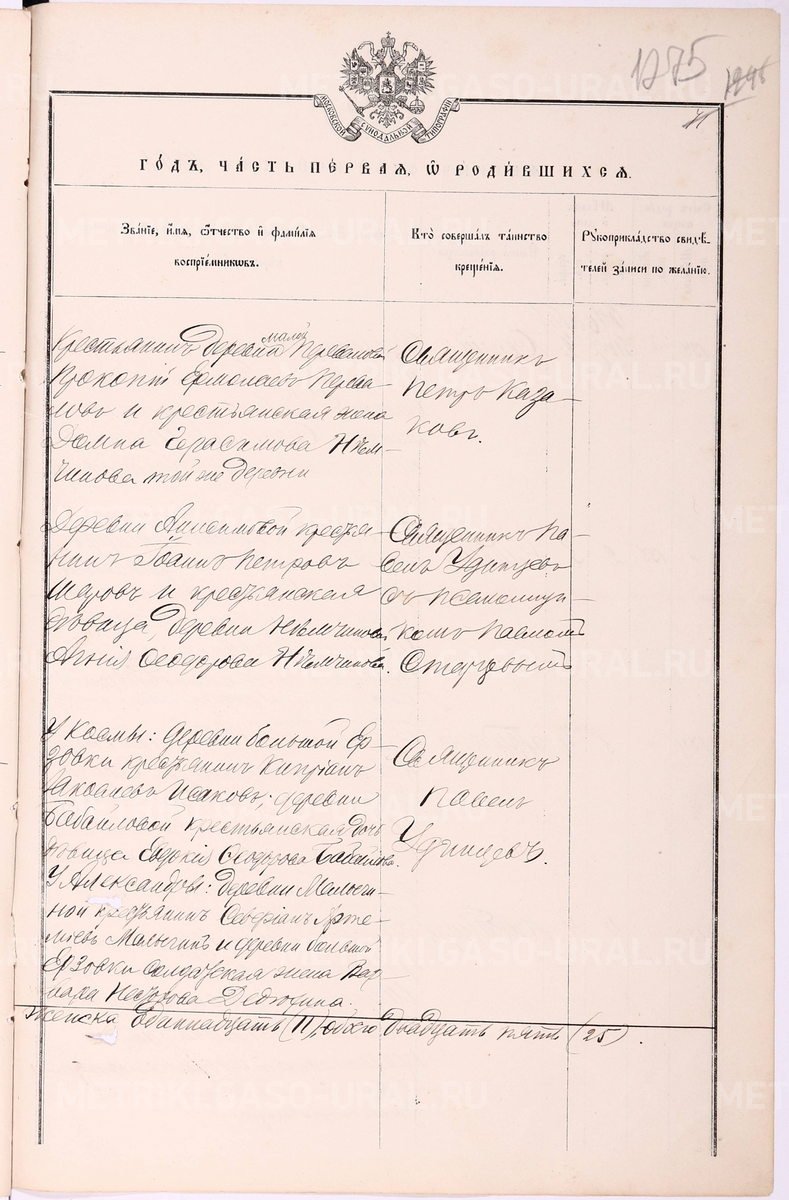 1275
МОСКОВСКОЙ СѴНОДАЛЬНОЙ ТИПОГРАФІИ
ГО́ДЪ, ЧА́СТЬ ПЕ́РВАЯ, Ѡ҆ РОДИ́ВШИХСЯ.
Зва́нїе, и҆́мя, ѻ҆́тчество и҆ фами́лїя
воспрїе́мниковъ.
Кто̀ соверша́лъ та́инство
креще́нїя.
Рꙋкоприкла́дство свидѣ́-
телей за́писи по жела́нїю.
Крестьянинъ деревни малой Переваловой
Прокопій Ермолаевъ Перева-
ловъ и крестьянская жена
Домна Герасимова Нѣм-
чинова той же деревни
Священникъ
Петръ Каза-
ковъ.
Деревни Анисимовой крестья-
нинъ Іоаннъ Петровъ
Шаровъ и крестьянская
дѣвица деревни Нѣмчиновой
Агнія Ѳеодорова Нѣмчинова.
Священникъ Па-
велъ Удинцевъ
съ псаломщи-
комъ Павломъ
Старцевымъ
У Космы: деревни Большой Ер-
зовки крестьянинъ Кипріанъ
Іаковлевъ Исаковъ; деревни
Бабайловой крестьянская дочь
дѣвица Евдокія Ѳеодорова Бабайлова.
Священникъ
Павелъ
Удинцевъ.
У Александры: деревни Малыги-
ной крестьянинъ Северіанъ Арте-
міевъ Малыгинъ и деревни Большой
Ерзовки солдатская жена Вар-
вара Несторова
Женска одиннадцать (11), обоего двадцать пять (25).
METRIKI.GASO-URAL.RU